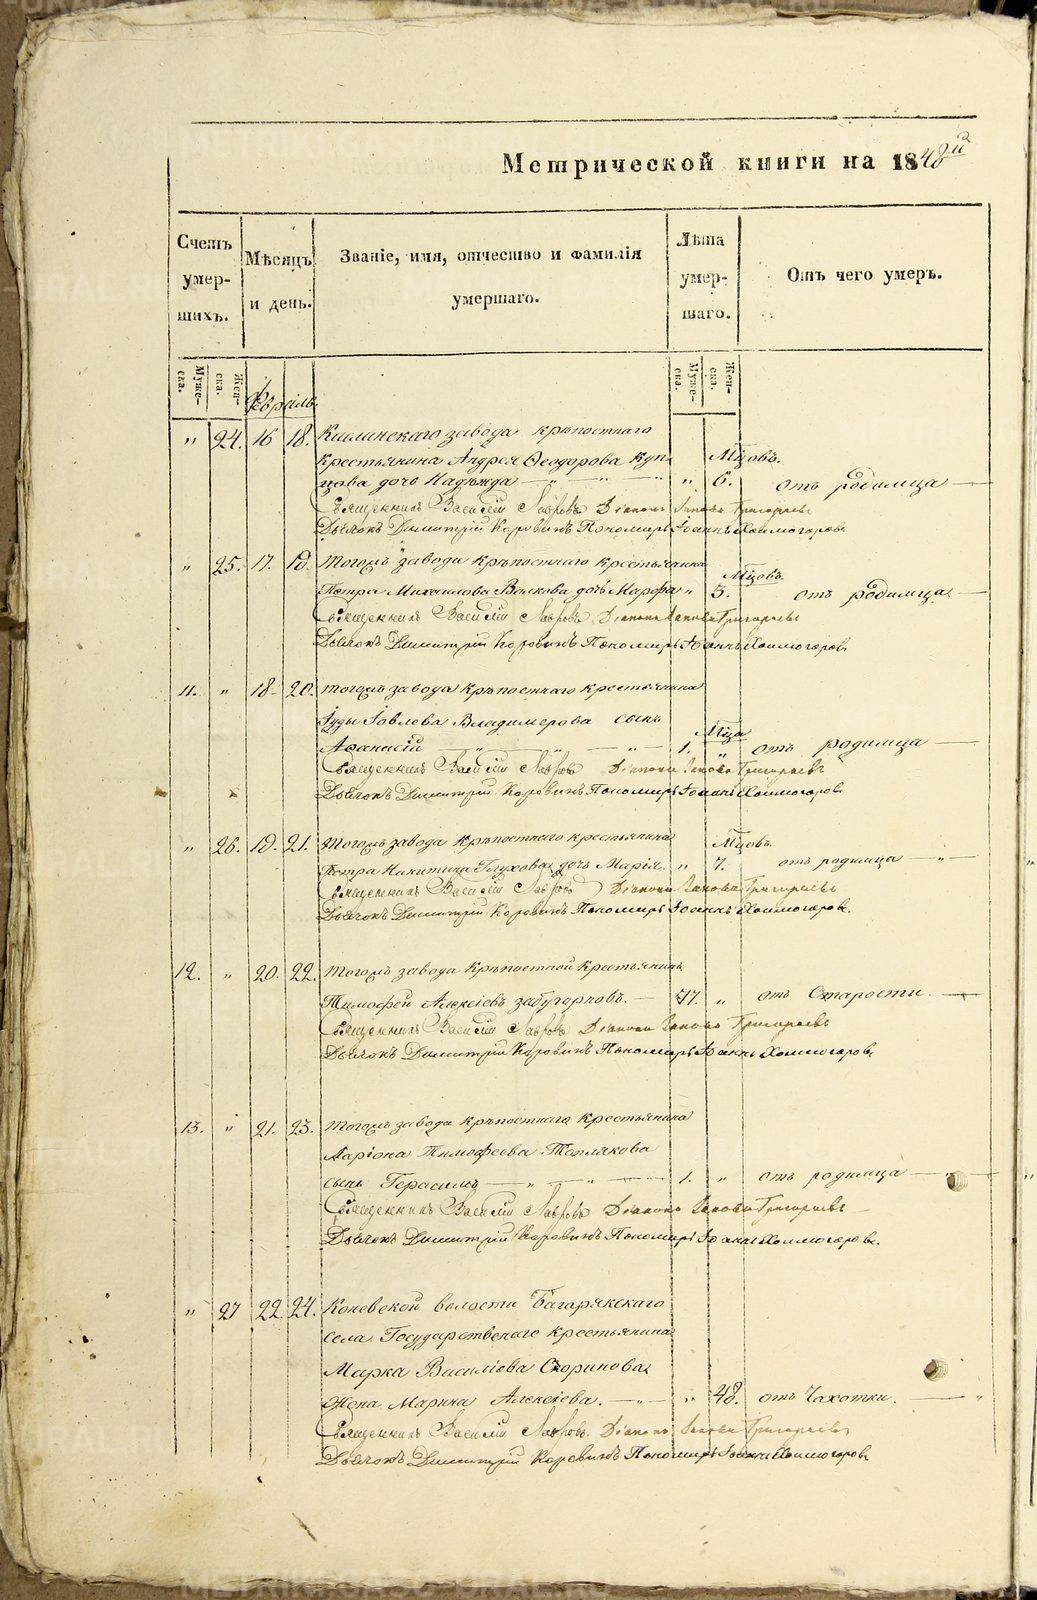 Метрической книги на 1848й
Счетъ умер- шихъ.
Мѣсяцъ и день.
Званіе, имя, отчество и фамилія умершаго.
Лѣта умер- шаго.
Отъ чего умеръ.
Муже- ска.
Жен- ска.
Муже- ска.
Жен- ска.
Февраль
" 24. 16 18. Каслинскаго завода крѣпостнаго
крестьянина Андрея Ѳеодорова Куп- Мцовъ.
цова дочь Надежда " 6. отъ родимца
Священникъ Василій Лавровъ Діаконъ Іаковъ Григорьевъ
Дьячокъ Димитрій Коровинъ Пономарь Іоаннъ Холмогоровъ
" 25. 17. 19. Тогожъ завода крѣпостнаго крестьянина Мцовъ.
Петра Михаилова Волкова дочь Марфа " 3. отъ родимца.
Священникъ Василій Лавровъ Діаконъ Іаковъ Григорьевъ
Дьячокъ Димитрій Коровинъ Пономарь Іоаннъ Холмогоровъ
11. " 18. 20. Тогожъ завода крѣпостнаго крестьянина
Іуды Іовлева Владимерова сынъ Мца
Афанасій 1. " отъ родимца
Священникъ Василій Лавровъ Діаконъ Іаковъ Григорьевъ
Дьячокъ Димитрій Коровинъ Пономарь Іоаннъ Холмогоровъ
" 26. 19. 21. Тогожъ завода крѣпостнаго крестьянина Мцовъ.
Петра Никитина Глухова дочь Марія. " 7. отъ родимца
Священникъ Василій Лавровъ Діаконъ Іаковъ Григорьевъ
Дьячокъ Димитрій Коровинъ Пономарь Іоаннъ Холмогоровъ.
12. " 20. 22. Тогожъ завода крѣпостной крестьянинъ
Тимофей Алексѣевъ Забугорновъ. 77. " отъ Старости.
Священникъ Василій Лавровъ Діаконъ Іаковъ Григорьевъ
Дьячокъ Димитрій Коровинъ Пономарь Іоаннъ Холмогоровъ
13. " 21. 23. Тогожъ завода крѣпостнаго крестьянина
Ларіона Тимофеева Теплякова
сынъ Герасимъ 1. " отъ родимца
Священникъ Василій Лавровъ Діаконъ Іаковъ Григорьевъ
Дьячокъ Димитрій Коровинъ Пономарь Іоаннъ Холмогоровъ.
" 27 22. 24. Коневской волости Багарякскаго
села Государственаго крестьянина
Марка Василіева Скоринова
жена Марина Алексѣева. " 48. отъ Чахотки.
Священникъ Василій Лавровъ Діаконъ Іаковъ Григорьевъ
Дьячокъ Димитрій Коровинъ Пономарь Іоаннъ Холмогоровъ